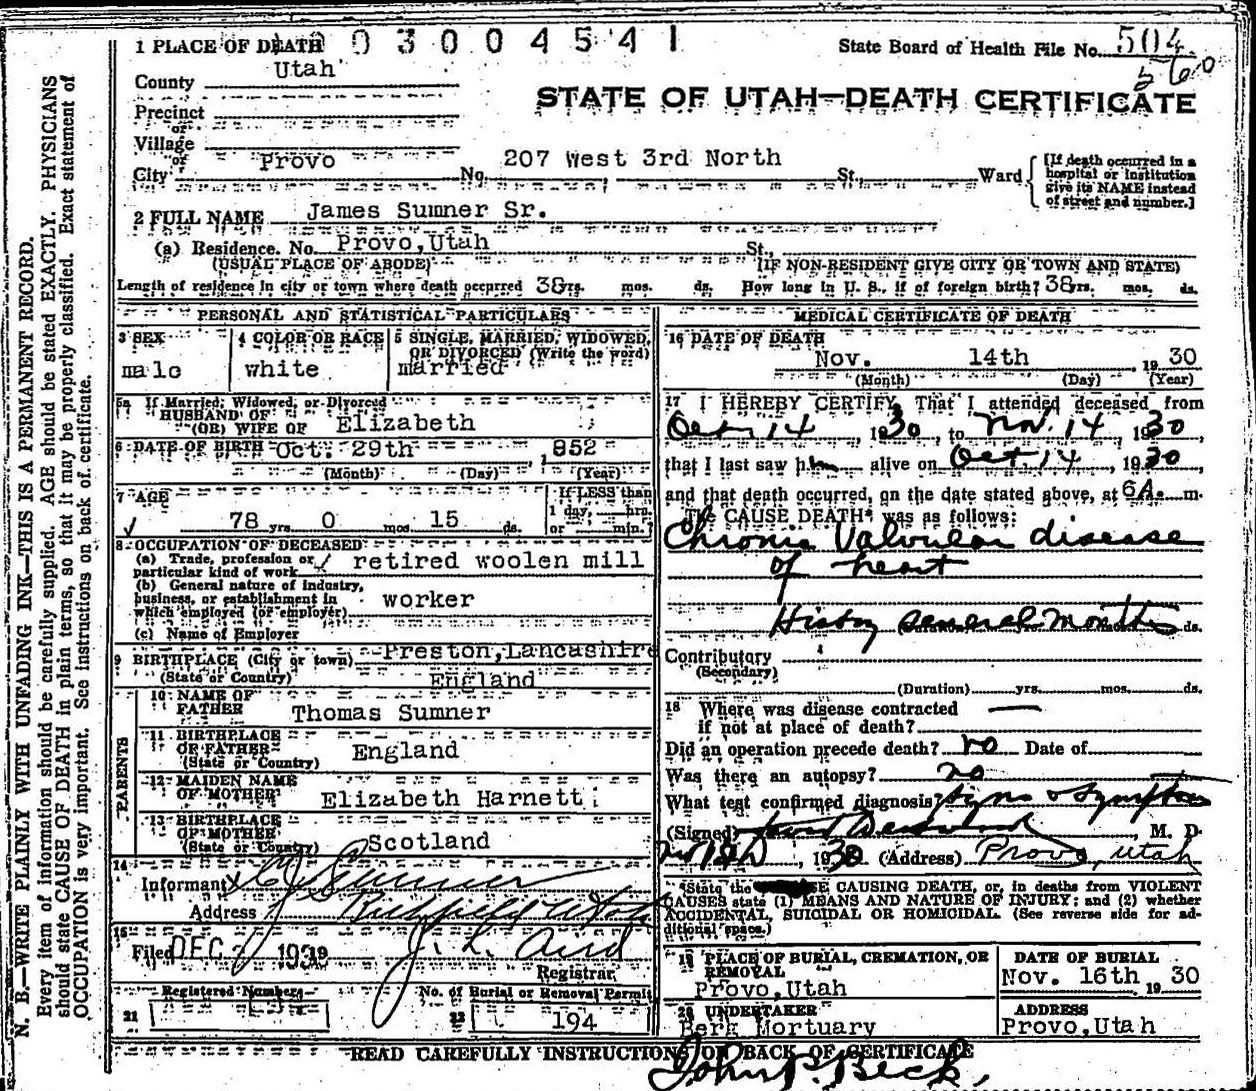 1 PLACE OF DEATH 0 3 0 0 4 5 4 1
State Board of Health File No. 504
560
County Utah
STATE OF UTAH—DEATH CERTIFICATE
Precinct
or
Village
or
City Provo No. 207 West 3rd North St., Ward
[If death occurred in a hospital or institution give its NAME instead of street and number.]
2 FULL NAME James Sumner Sr.
(a) Residence. No. Provo, Utah St.,
(USUAL PLACE OF ABODE) (IF NON-RESIDENT GIVE CITY OR TOWN AND STATE)
Length of residence in city or town where death occurred 38 yrs. mos. ds. How long in U. S., if of foreign birth? 38 yrs. mos. ds.
PERSONAL AND STATISTICAL PARTICULARS
3 SEX male
4 COLOR OR RACE white
5 SINGLE, MARRIED, WIDOWED, OR DIVORCED (Write the word) married
5a If Married, Widowed, or Divorced
HUSBAND OF
(OR) WIFE OF Elizabeth
6 DATE OF BIRTH Oct. 29th 1852
(Month) (Day) (Year)
7 AGE 78 yrs. 0 mos. 15 ds.
If LESS than 1 day, hrs. or min.?
8 OCCUPATION OF DECEASED
(a) Trade, profession or particular kind of work retired woolen mill
(b) General nature of industry, business, or establishment in which employed (or employer) worker
(c) Name of Employer
9 BIRTHPLACE (City or town) Preston, Lancashire
(State or Country) England
PARENTS
10 NAME OF FATHER Thomas Sumner
11 BIRTHPLACE OF FATHER (State or Country) England
12 MAIDEN NAME OF MOTHER Elizabeth Harnett
13 BIRTHPLACE OF MOTHER (State or Country) Scotland
14
Informant Sumner
Address Richfield Utah
15
Filed DEC 193 J. L. Aird
Registrar
Registered Number
No. of Burial or Removal Permit
21
22 194
MEDICAL CERTIFICATE OF DEATH
16 DATE OF DEATH
Nov. 14th 19 30
(Month) (Day) (Year)
17 I HEREBY CERTIFY, That I attended deceased from
Oct 14, 1930, to Nov. 14 1930
that I last saw him alive on Oct 14, 1930,
and that death occurred, on the date stated above, at 6A. m.
The CAUSE DEATH* was as follows:
Chronic Valvular disease
of heart
History several months ds.
Contributary
(Secondary)
(Duration) yrs. mos. ds.
18 Where was disease contracted —
if not at place of death?
Did an operation precede death? no Date of
Was there an autopsy? no
What test confirmed diagnosis? Signs & Symptoms
(Signed) M. D.
1930 (Address) Provo, Utah
*State the CAUSING DEATH, or, in deaths from VIOLENT
CAUSES state (1) MEANS AND NATURE OF INJURY; and (2) whether
ACCIDENTAL, SUICIDAL OR HOMICIDAL. (See reverse side for additional space.)
19 PLACE OF BURIAL, CREMATION, OR REMOVAL
Provo, Utah
DATE OF BURIAL
Nov. 16th 19 30
20 UNDERTAKER
Berg Mortuary
ADDRESS
Provo, Utah
READ CAREFULLY INSTRUCTIONS ON BACK OF CERTIFICATE
John P. Beck.
N. B.—WRITE PLAINLY WITH UNFADING INK—THIS IS A PERMANENT RECORD.
Every item of information should be carefully supplied. AGE should be stated EXACTLY. PHYSICIANS
should state CAUSE OF DEATH in plain terms, so that it may be properly classified. Exact statement of
OCCUPATION is very important. See instructions on back of certificate.